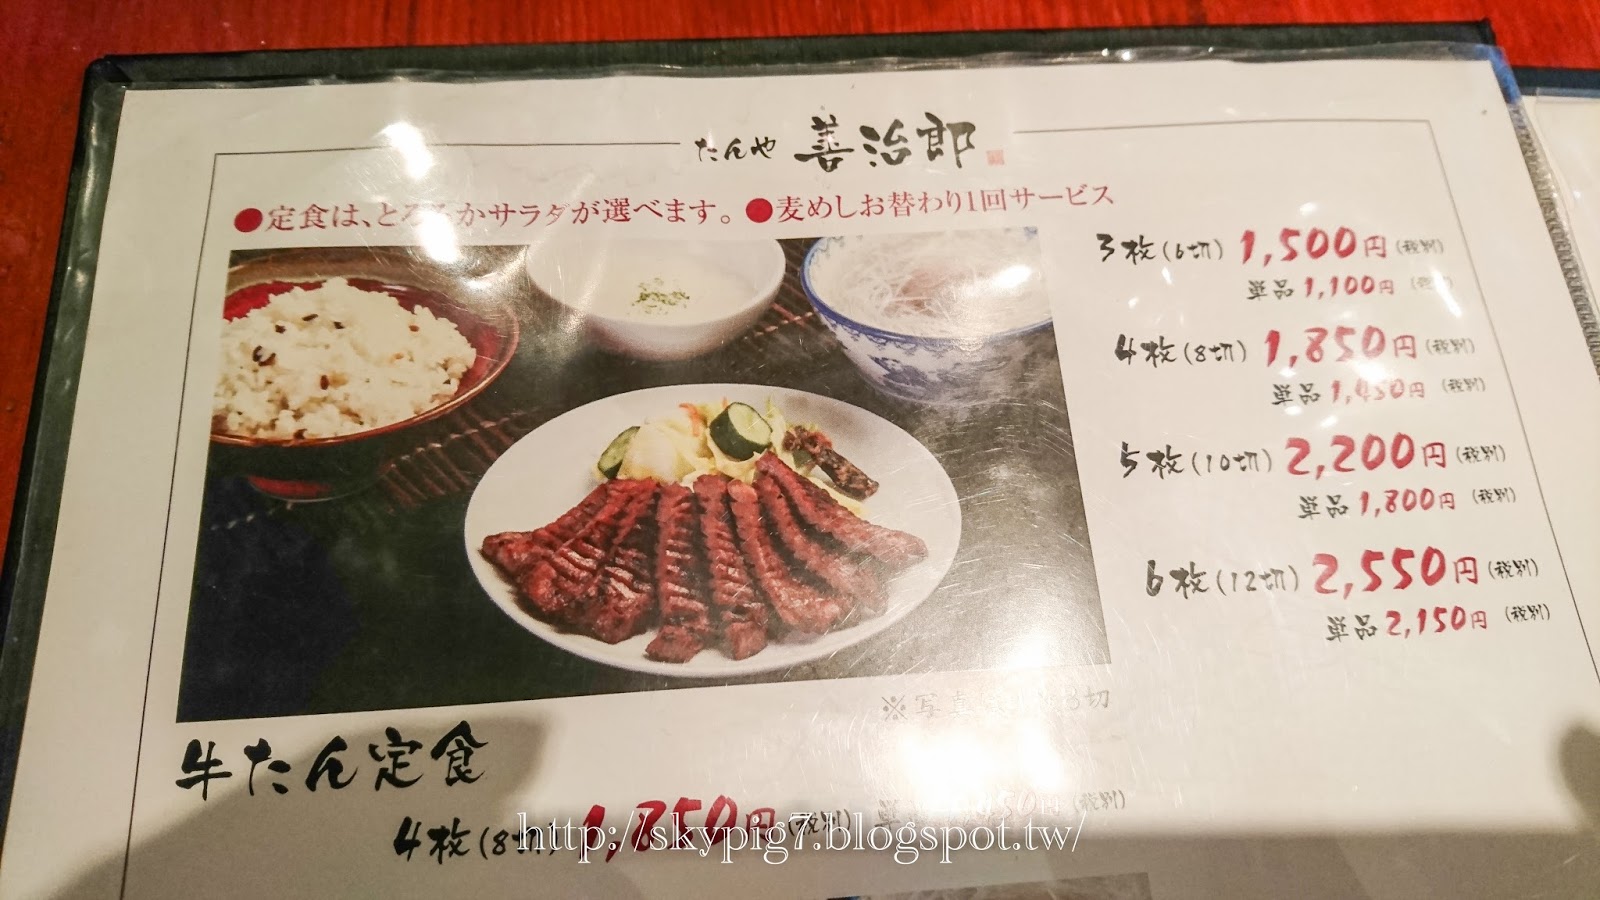 たんや 善治郎
●定食は、とろろかサラダが選べます。●麦めしお替わり1回サービス
3枚(6切) 1,500円(税別)
単品1,100円
4枚(8切) 1,850円(税別)
単品1,450円(税別)
5枚(10切) 2,200円(税別)
単品1,800円(税別)
6枚(12切) 2,550円(税別)
単品2,150円(税別)
※写真 8切
牛たん定食
4枚(8切) 1,850円(税別) 単 450円(税別)
http://skypig7.blogspot.tw/